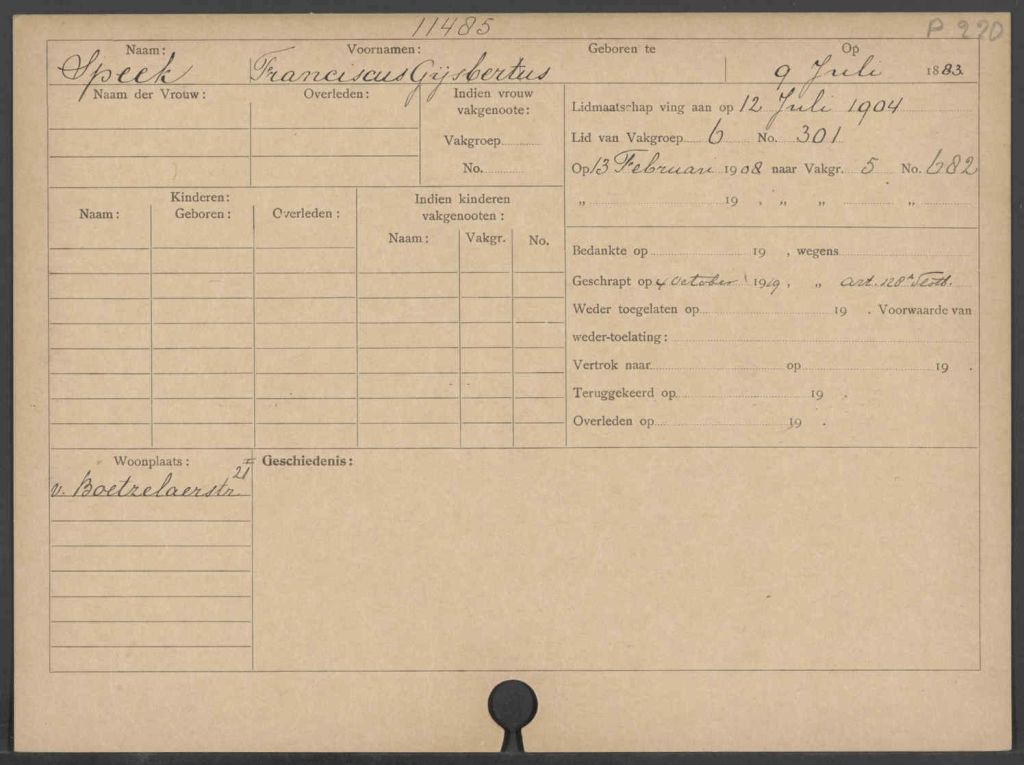 11485
P 220
Naam: Voornamen: Geboren te Op
Speek Franciscus Gijsbertus 9 Juli 1883.
Naam der Vrouw: Overleden: Indien vrouw vakgenoote:
Vakgroep
No.
Lidmaatschap ving aan op 12 Juli 1904
Lid van Vakgroep 6 No. 301
Op 13 Februari 1908 naar Vakgr. 5 No. 682
„ 19 , „ „ „
Kinderen:
Naam: Geboren: Overleden:
Indien kinderen vakgenooten:
Naam: Vakgr. No.
Bedankte op 19 , wegens
Geschrapt op 4 October 1919, „ art. 128
Weder toegelaten op 19 . Voorwaarde van
weder-toelating:
Vertrok naar op 19 .
Teruggekeerd op 19 .
Overleden op 19 .
Woonplaats: Geschiedenis:
v. Boetzelaerstr 21